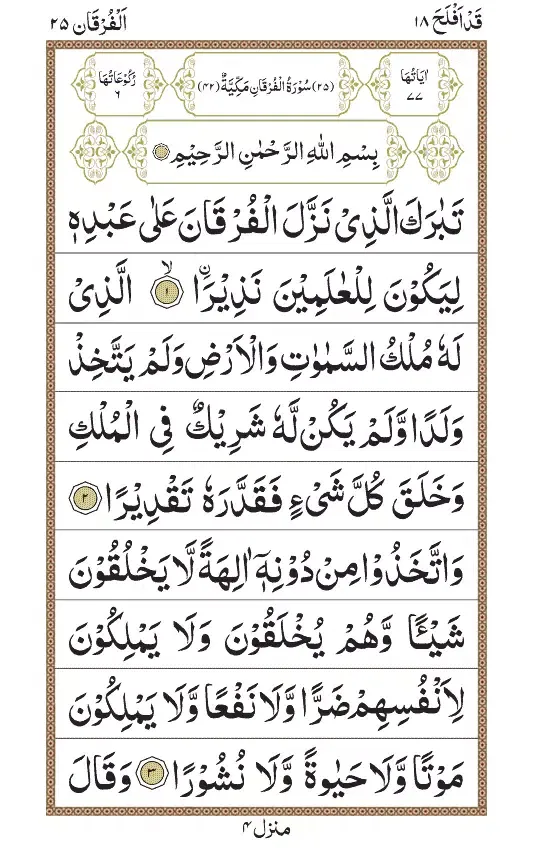 قَدْ اَفْلَحَ ١٨
اَلْفُرْقَان ٢٥
اٰيَاتُهَا ٧٧
(٢٥) سُوْرَةُ الْفُرْقَانِ مَكِّيَّةٌ (٤٢)
رُكُوْعَاتُهَا ٦
بِسْمِ اللهِ الرَّحْمٰنِ الرَّحِيْمِ
تَبٰرَكَ الَّذِىْ نَزَّلَ الْفُرْقَانَ عَلٰى عَبْدِهٖ
لِيَكُوْنَ لِلْعٰلَمِيْنَ نَذِيْرًا ۙ ١ الَّذِىْ
لَهٗ مُلْكُ السَّمٰوٰتِ وَالْاَرْضِ وَلَمْ يَتَّخِذْ
وَلَدًا وَّلَمْ يَكُنْ لَّهٗ شَرِيْكٌ فِى الْمُلْكِ
وَخَلَقَ كُلَّ شَىْءٍ فَقَدَّرَهٗ تَقْدِيْرًا ٢
وَاتَّخَذُوْا مِنْ دُوْنِهٖۤ اٰلِهَةً لَّا يَخْلُقُوْنَ
شَيْـًٔا وَّهُمْ يُخْلَقُوْنَ وَلَا يَمْلِكُوْنَ
لِاَنْفُسِهِمْ ضَرًّا وَّلَا نَفْعًا وَّلَا يَمْلِكُوْنَ
مَوْتًا وَّلَا حَيٰوةً وَّلَا نُشُوْرًا ٣ وَقَالَ
منزل ٤